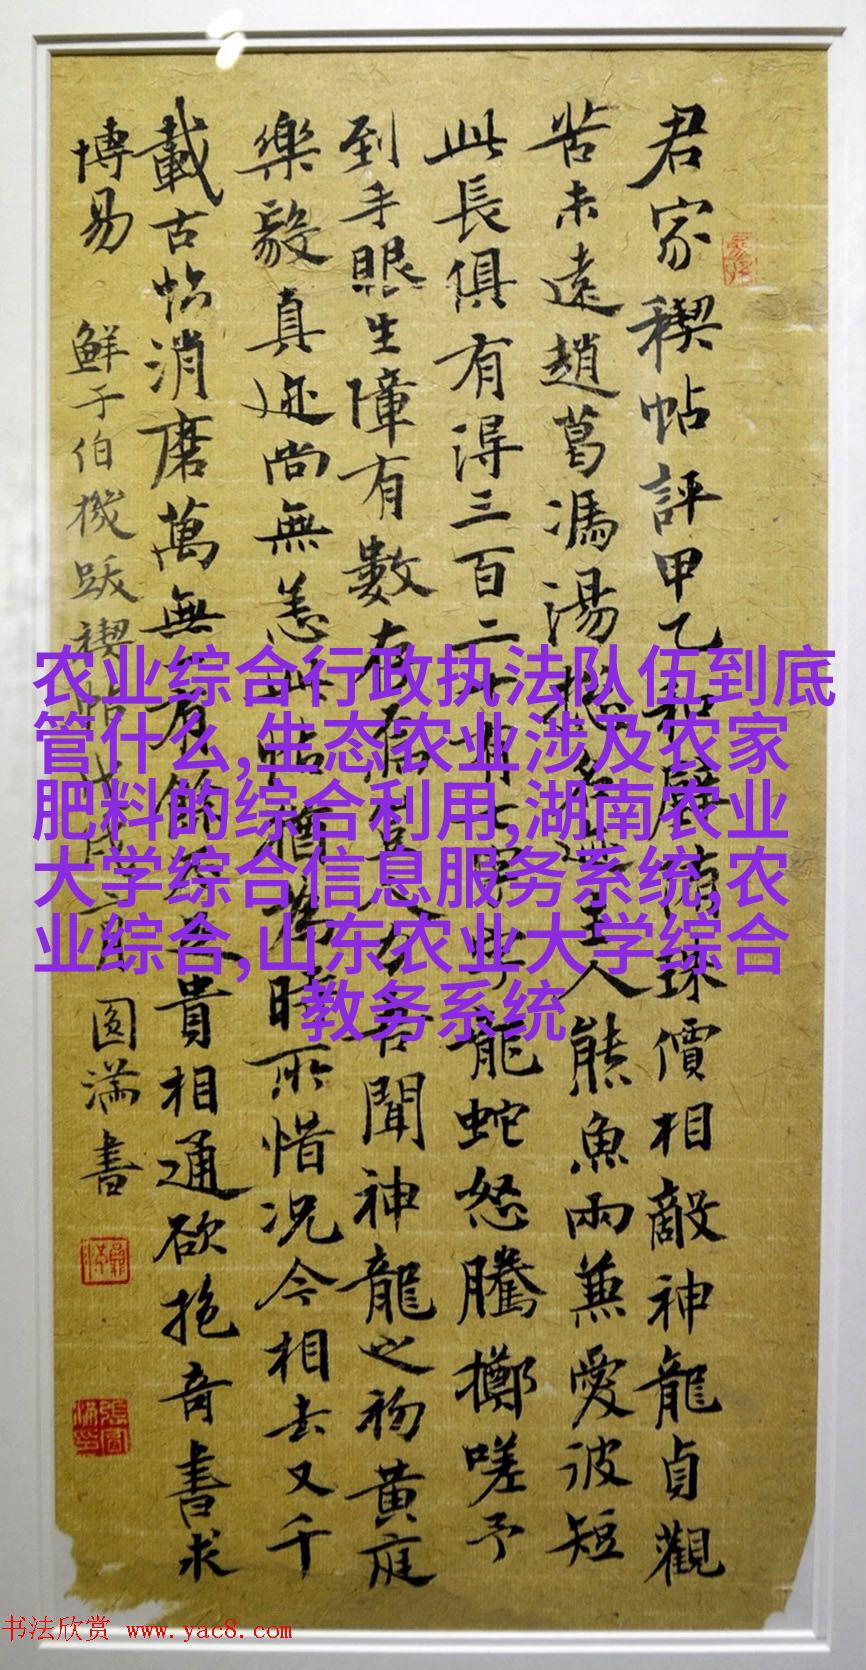 君家稧帖評甲乙和璧隋珠價相敵神龍貞觀
苦未遠趙葛馮湯揔名迹主人熊魚兩兼愛彼短
此長俱有得三百二十有七字龍蛇怒騰擲嗟予
到手眼生障有數存焉豈人力吾聞神龍之初黃庭
樂毅真迹尚無恙此帖猶為時所惜况今相去又千
載古帖消磨萬無有餘貴相通欲抱奇書求
博易 鮮于伯機跋禊帖戊戌二月 圓滿書
农业综合行政执法队伍到底
管什么,生态农业涉及农家
肥料的综合利用,湖南农业
大学综合信息服务系统,农
业综合,山东农业大学综合
教务系统
书法欣赏 www.yac8.com